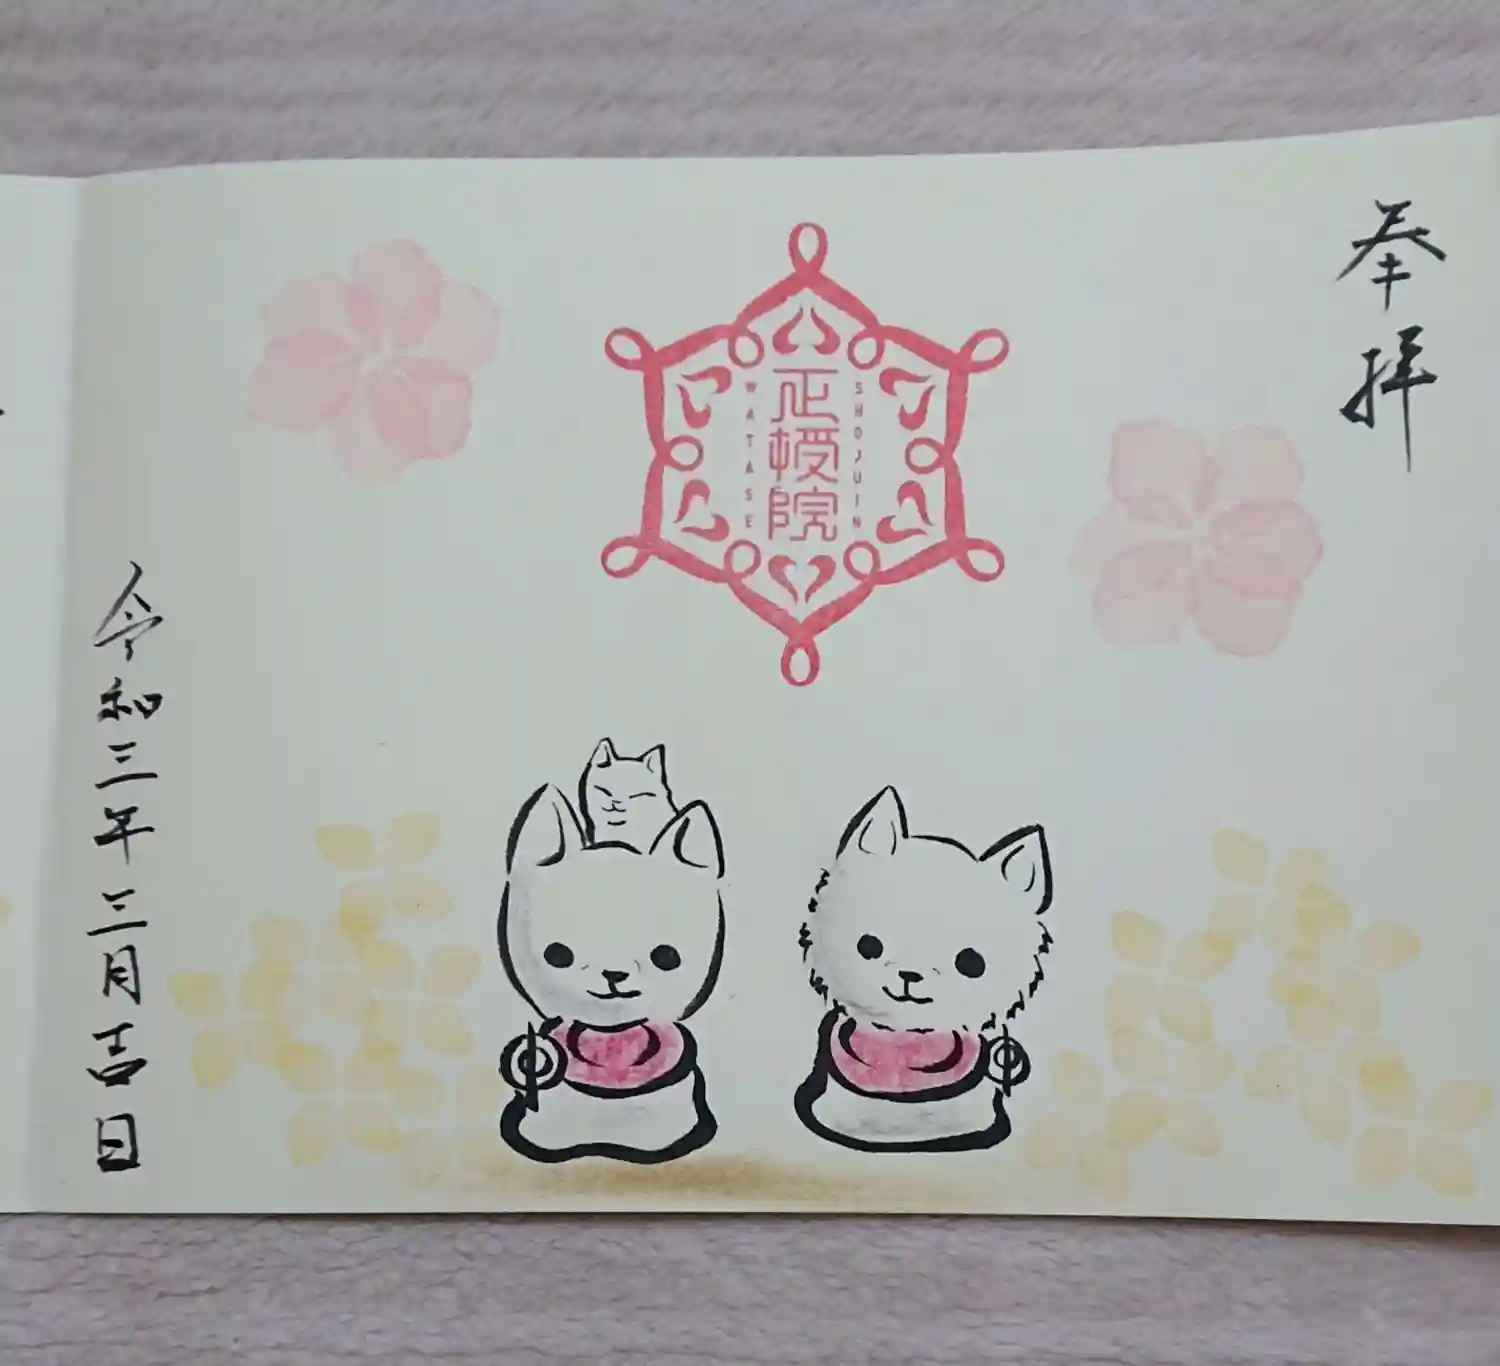 奉拝
SHOJUIN
正授院
WATASE
令和三年三月吉日